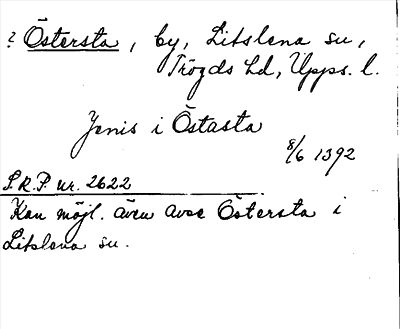 ? Östersta, by, Litslena sn,
Trögds hd, Upps. l.
Jenis i Östasta
8/6 1392
S.R.P. nr. 2622
Kan möjl. även avse Östersta i
Litslena sn.